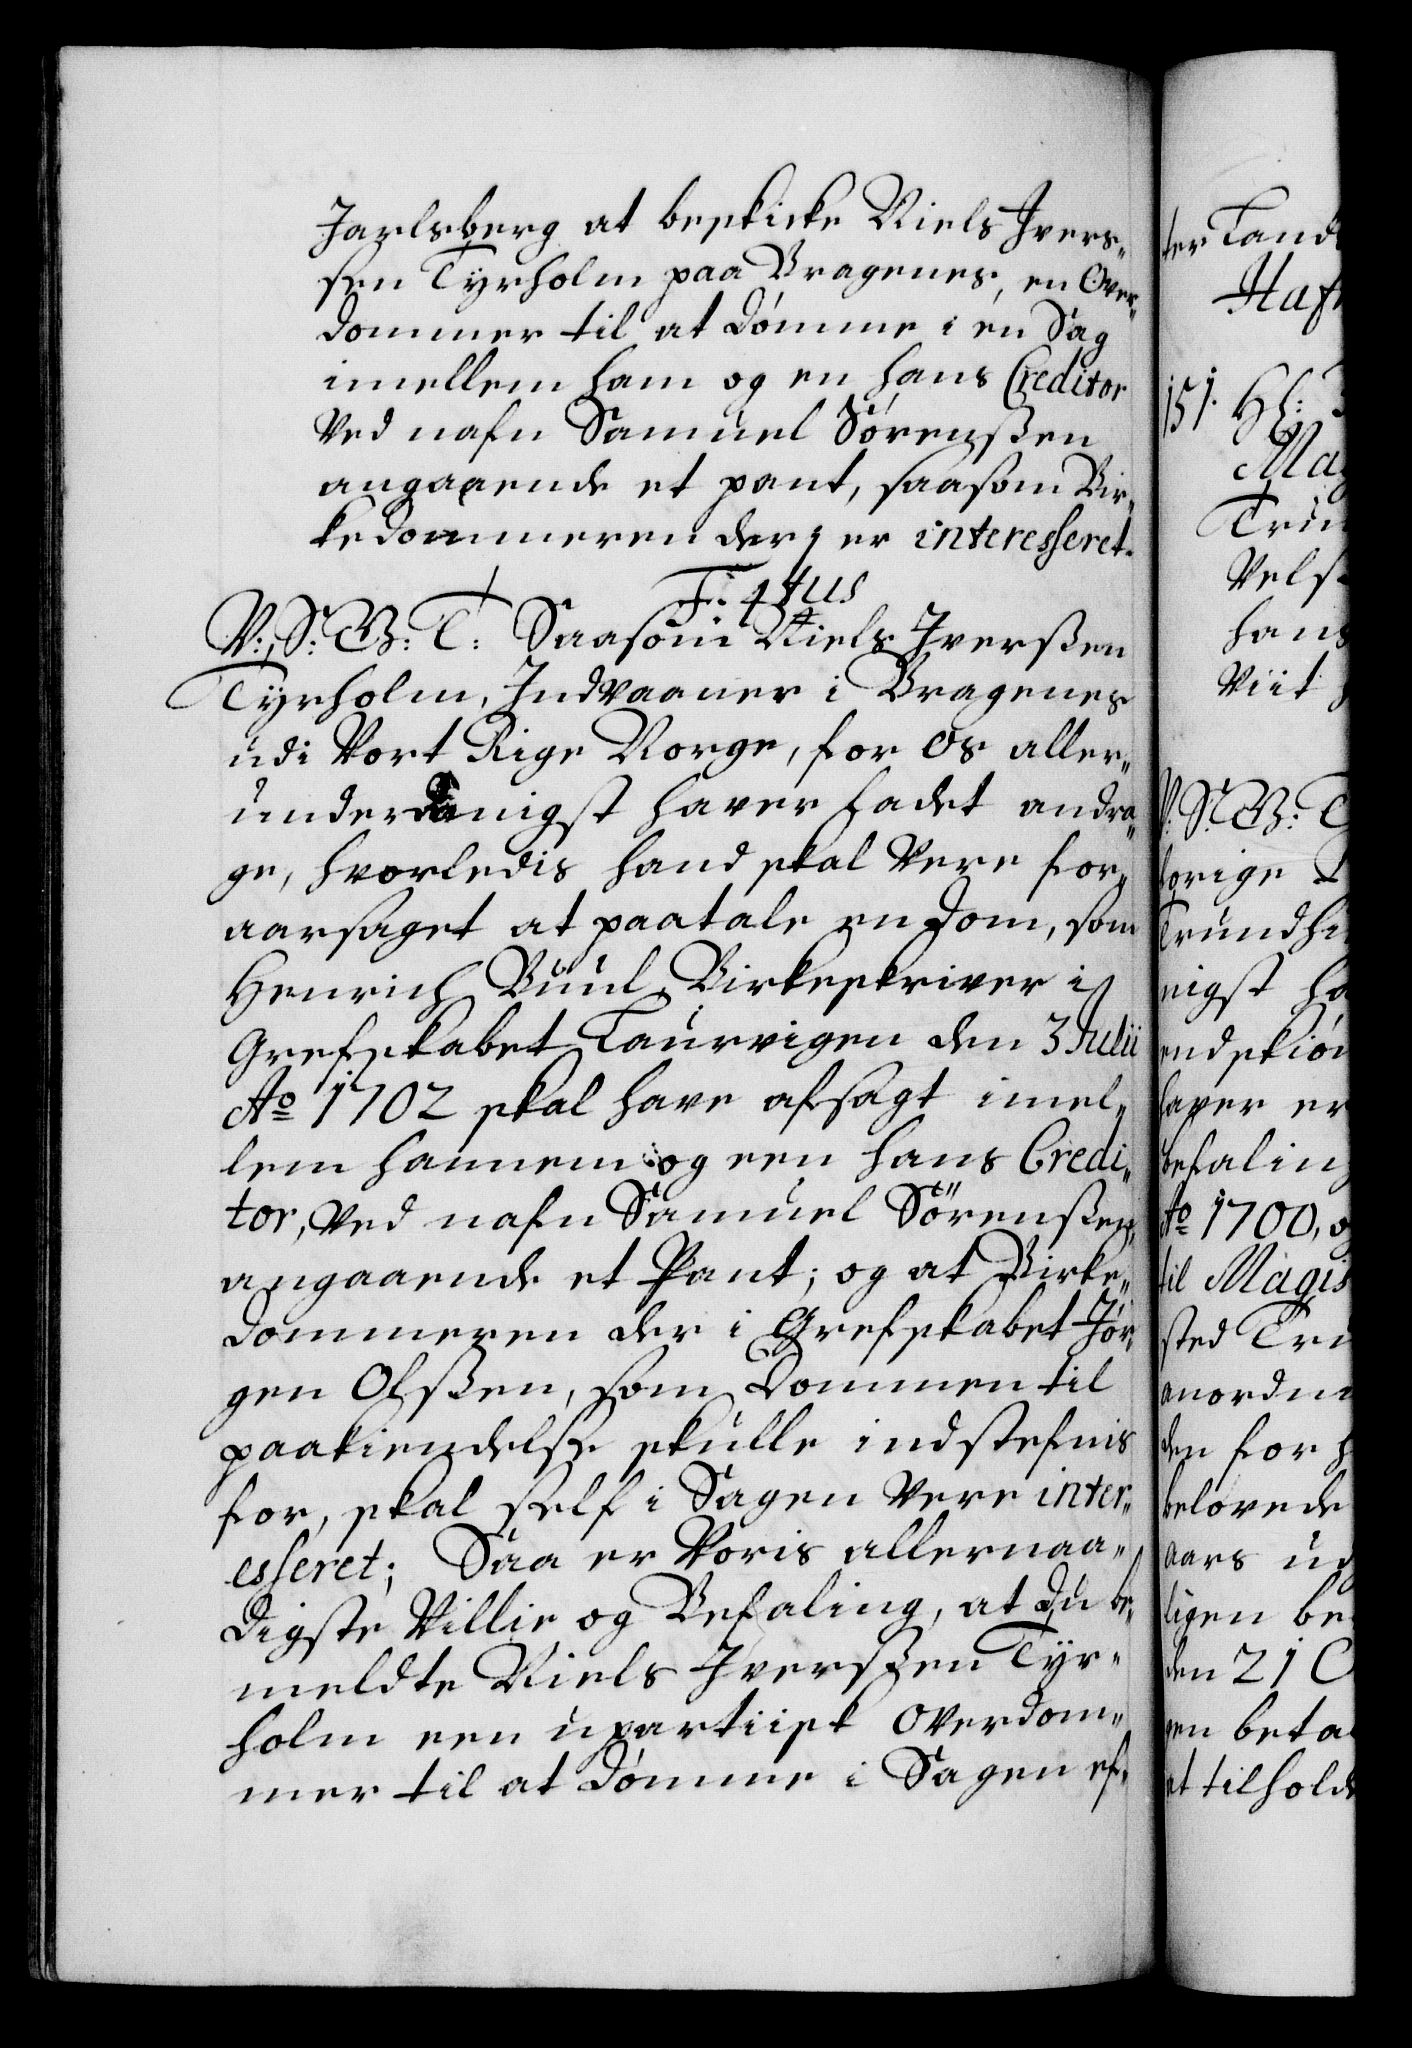 Jarlsberg at beskicke Niels Ivers„
sen Tyrholm paa Bragenes, en Over„
dommer til at dømme i en Sag
imellem ham og en hans Creditor
Ved nafn Samuel Sørenßen
angaaende et pant, saasom Bir„
kedommeren der j er interesseret.
F: 4tus
V: S: G: T: Saasom Niels Iverßen
Tyrholm, Indvaaner i Bragenes
udi Vort Rige Norge, for Os aller„
underdanigst haver ladet andra„
ge, hvorledis hand skal Vere for„
aarsaget at paatale en Dom, som
Henrich Buul, Birkeskriver i
Grefskabet Laurvigen den 3 Julii
Ao 1702 skal have afsagt imel„
lem hannem og een hans Credi„
tor, Ved nafn Samuel Sörenßen,
angaaende et Pant; og at Birke„
dommeren der i Grefskabet Jør„
gen Olßen, som Dommen til
paakiendelse skulle indstefnis
for, skal self i Sagen Vere inter„
esseret; Saa er Voris allernaa„
digste Villie og Befaling, at du be„
meldte Niels Iverßen Tyr„
holm een upartiisk Overdom„
mer til at dømme i Sagen ef„
ter Land
Haf
151. Hl:
Ma
Tru
Vels
hans
Viit
V: S: G: T
forige
Trundhi
nigst ha
endskiøn
haver er
befaling
Ao 1700, o
til Magis
sted Tru
anordne
den for h
belovede
aars ud
ligen be
den 21 O
en beta
et tilholde